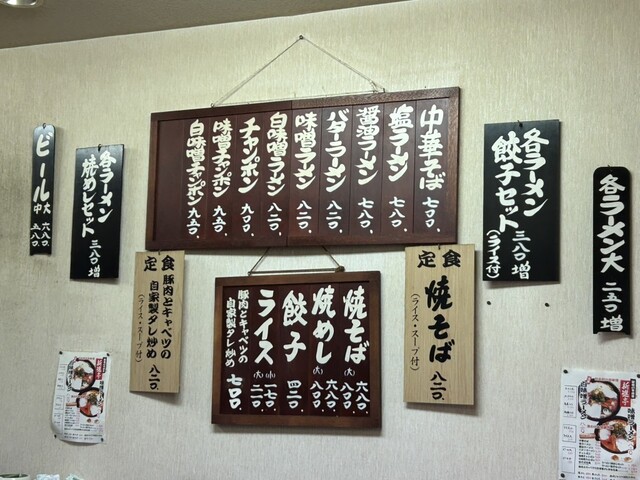 中華そば 七〇〇、
塩ラーメン 七八〇、
醤油ラーメン 七八〇、
バターラーメン 八二〇、
味噌ラーメン 八二〇、
白味噌ラーメン 八二〇、
チャンポン 九〇〇、
味噌チャンポン 九五〇、
白味噌チャンポン 九五〇、
各ラーメン
餃子セット 三八〇増
(ライス付)
各ラーメン大 二五〇増
各ラーメン
焼めしセット 三八〇増
ビール 大 六八〇、
中 五八〇、
定食
焼そば 八二〇、
(ライス・スープ付)
焼そば 六八〇、
(大) 八〇〇、
焼めし 六八〇、
(大) 八〇〇、
餃子 四二〇、
ライス (小) 一七〇、
(大) 二二〇、
豚肉とキャベツの
自家製タレ炒め 七〇〇、
定食
豚肉とキャベツの
自家製タレ炒め 八二〇、
(ライス・スープ付)